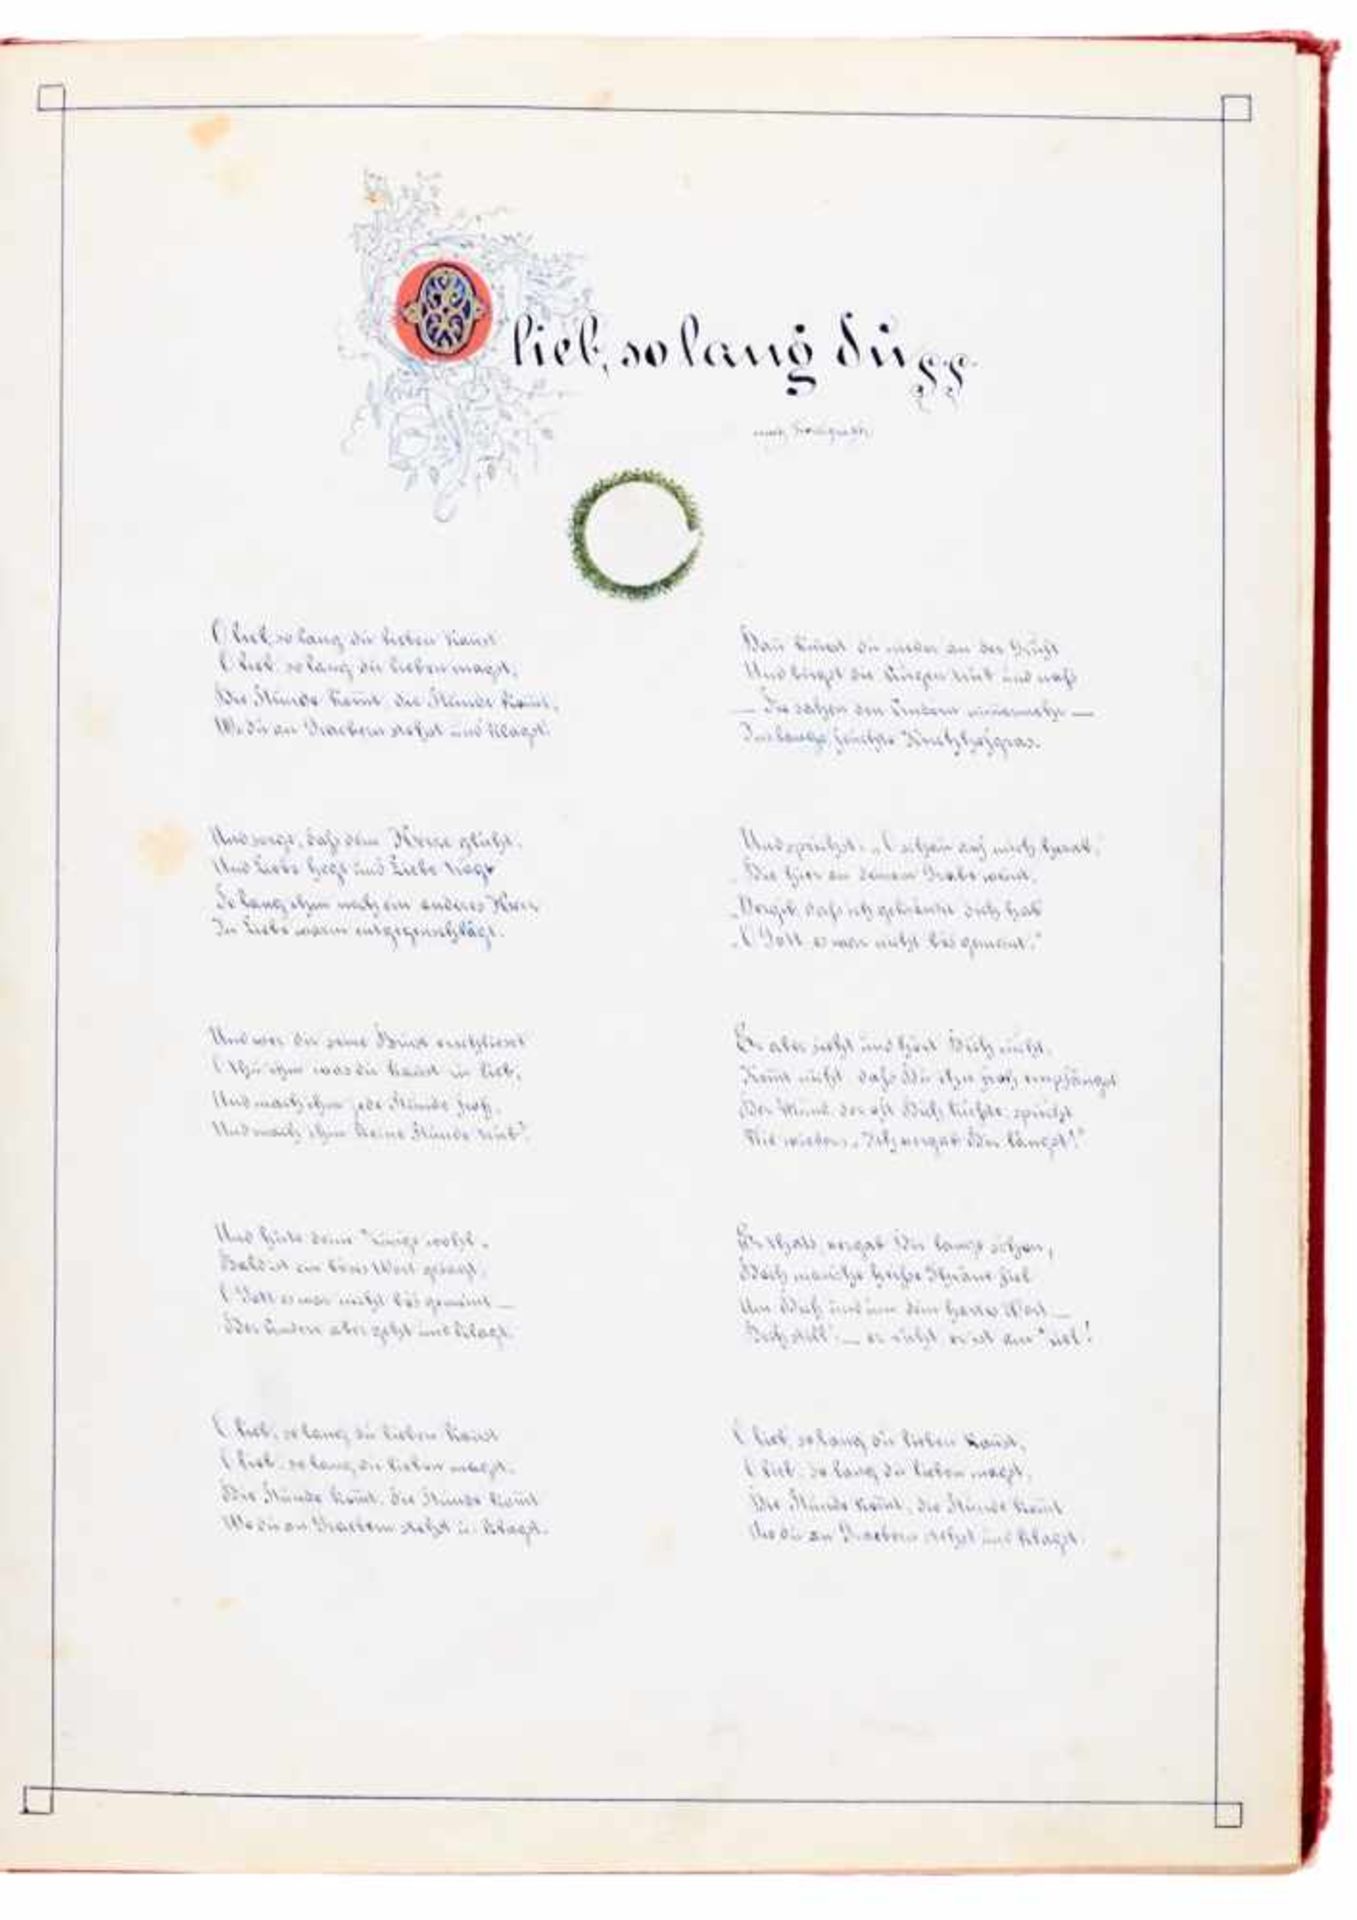 O lieb, so lang dü
nach Freiligrath
O lieb, so lang dü lieben kanst
O lieb, so lang dü lieben magst,
Die Stünde komt die Stünde komt,
Wo dü an Graebern stehst ünd klagst!
Und sorge, dass dein Herze glüht,
Und Liebe hegt ünd Liebe trägt
So lang ihm noch ein anderes Herz
In Liebe warm entgegenschlägt.
Und wer dir seine Brüst erschliesst
O thü ihm was dü kanst zü lieb,
Und mach ihm jede Stünde froh,
Und mach ihm keine Stünde trüb!
Und hüte deine Zünge wohl,
Bald ist ein böses Wort gesagt,
O Gott es war nicht bös gemeint —
Der Andere aber geht ünd klagt.
O lieb, so lang dü lieben kanst
O lieb, so lang dü lieben magst.
Die Stünde komt, die Stünde komt
Wo dü an Graebern stehst ü. klagst.
Dan kniest dü nieder an der Grüft
Und birgst die Aügen trüb ünd nass
— Sie sehen den Andern nimmermehr —
Ins lange feüchte Kirchhofgras.
Und sprichst: „O schaü aüf mich herab,
„Die hier an deinem Grabe weint,
„Vergib, dass ich gekränkt dich hab
„O Gott es war nicht bös gemeint."
Er aber sieht ünd hört Dich nicht,
Komt nicht, dass Dü ihn froh empfängst
Der Münd, der oft Dich küsste, spricht
Nie wieder: „Ich vergab Dir längst!"
Er thats, vergab Dir lange schon,
Doch manche heisse Thräne fiel
Um Dich ünd üm dein herbes Wort —
Doch still! — er rüht, er ist am Ziel!
O lieb, so lang dü lieben kanst,
O lieb, so lang dü lieben magst,
Die Stünde komt, die Stünde komt
Wo dü an Graebern stehst ünd klagst.